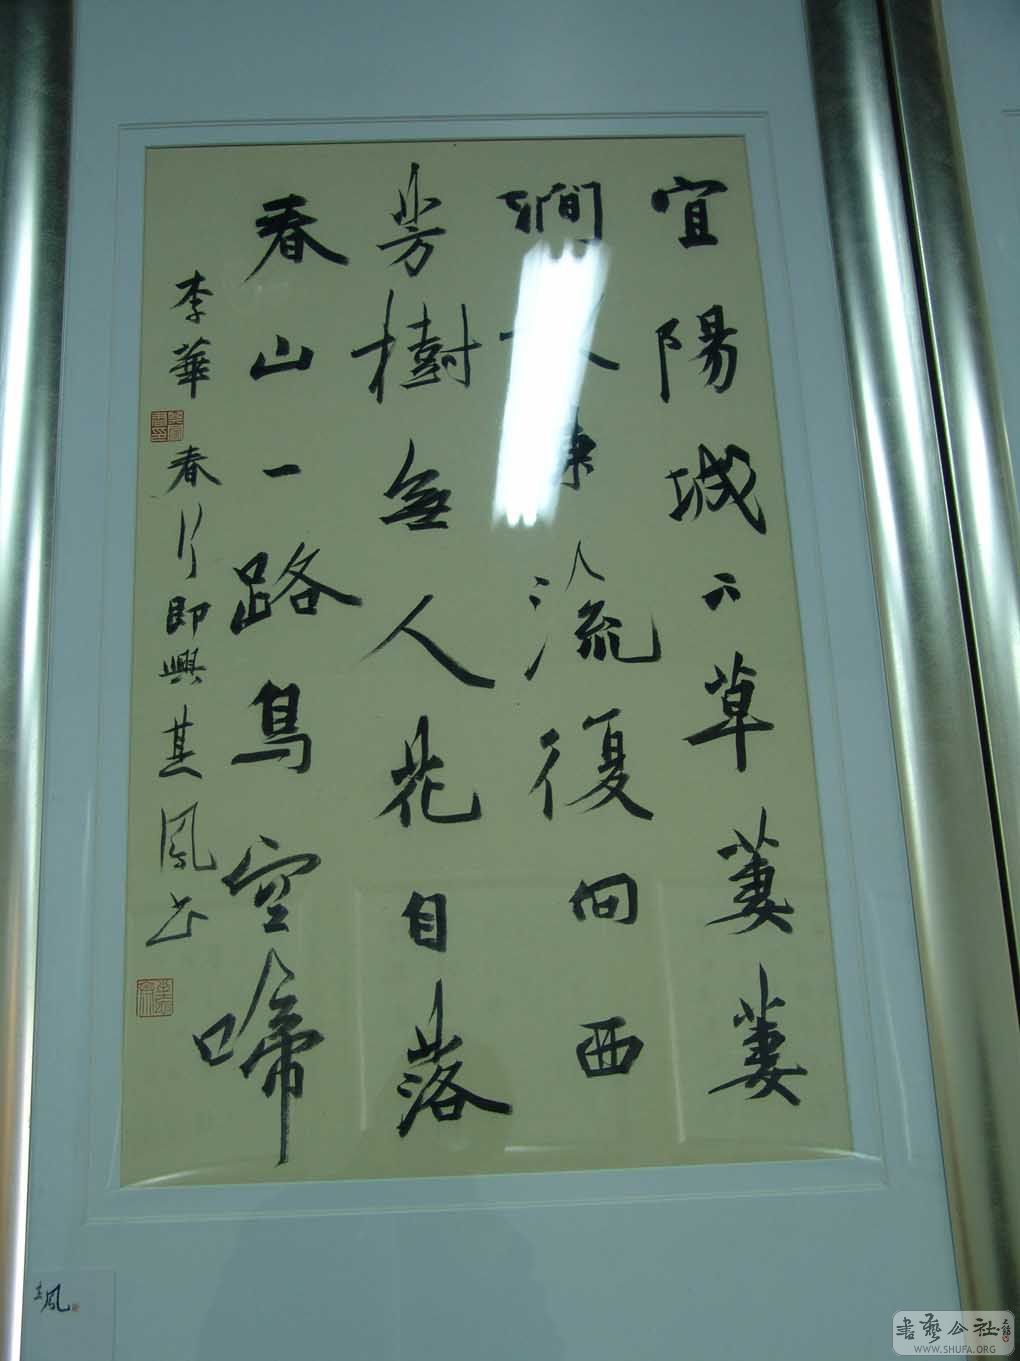 宜陽城下草萋萋
澗水東流復向西
芳樹無人花自落
春山一路鳥空啼
李華 春行即興 其鳳书
鳳
書藝公社
WWW.SHUFA.ORG